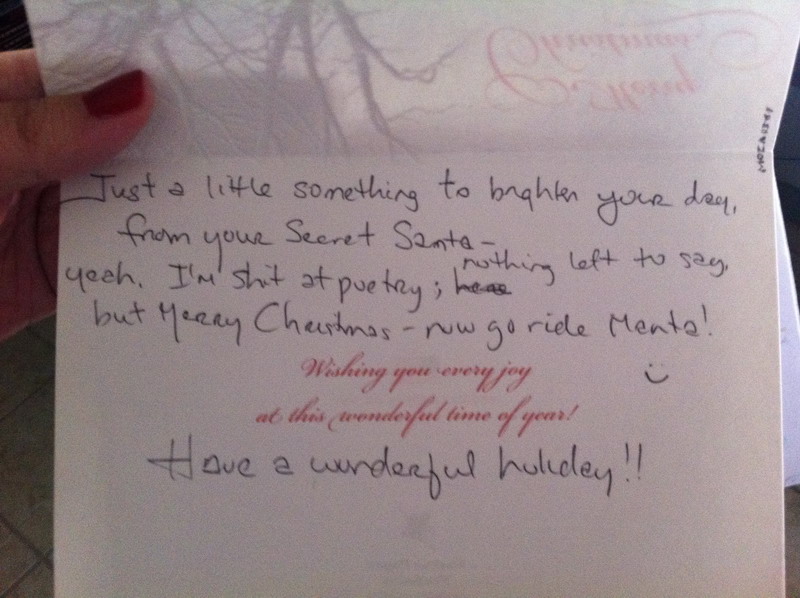 Merry
Christmas
Just a little something to brighten your day,
from your Secret Santa-
nothing left to say,
yeah. I'm shit at poetry;
but Merry Christmas - now go ride Manta!
Wishing you every joy
at this wonderful time of year!
Have a wonderful holiday!!